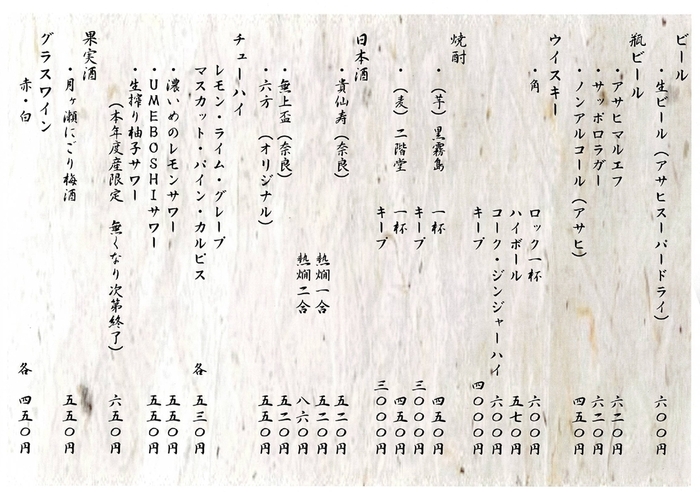 ビール
・生ビール(アサヒスーパードライ) 六〇〇円
瓶ビール
・アサヒマルエフ 六二〇円
・サッポロラガー 六二〇円
・ノンアルコール(アサヒ) 四五〇円
ウイスキー
・角 ロック一杯 六〇〇円
ハイボール 五七〇円
コーク・ジンジャーハイ 六〇〇円
キープ 四〇〇〇円
焼酎
・(芋) 黒霧島 一杯 四五〇円
キープ 三〇〇〇円
・(麦) 二階堂 一杯 四五〇円
キープ 三〇〇〇円
日本酒
・貴仙寿(奈良) 五二〇円
熱燗一合 五二〇円
熱燗二合 八六〇円
・無上盃(奈良) 五二〇円
・六方(オリジナル) 五五〇円
チューハイ
レモン・ライム・グレープ
マスカット・パイン・カルピス 各 五三〇円
・濃いめのレモンサワー 五五〇円
・UMEBOSHIサワー 五五〇円
・生搾り柚子サワー
(本年度産限定 無くなり次第終了) 六五〇円
果実酒
・月ヶ瀬にごり梅酒 五五〇円
グラスワイン
赤・白 各 四五〇円